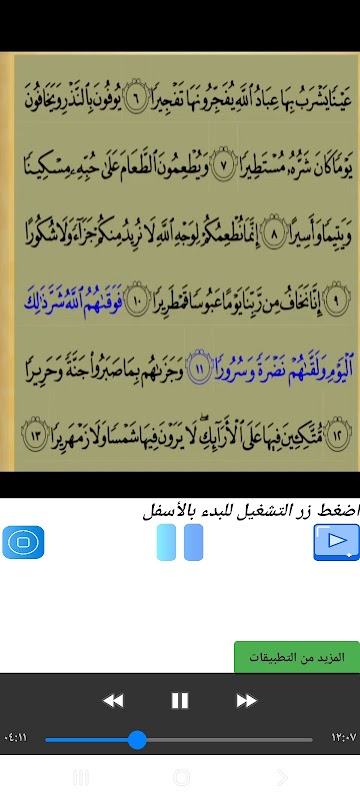 عَيْنًا يَشْرَبُ بِهَا عِبَادُ ٱللَّهِ يُفَجِّرُونَهَا تَفْجِيرًا ٦ يُوفُونَ بِٱلنَّذْرِ وَيَخَافُونَ
يَوْمًا كَانَ شَرُّهُۥ مُسْتَطِيرًا ٧ وَيُطْعِمُونَ ٱلطَّعَامَ عَلَىٰ حُبِّهِۦ مِسْكِينًا
وَيَتِيمًا وَأَسِيرًا ٨ إِنَّمَا نُطْعِمُكُمْ لِوَجْهِ ٱللَّهِ لَا نُرِيدُ مِنكُمْ جَزَآءً وَلَا شُكُورًا
٩ إِنَّا نَخَافُ مِن رَّبِّنَا يَوْمًا عَبُوسًا قَمْطَرِيرًا ١٠ فَوَقَىٰهُمُ ٱللَّهُ شَرَّ ذَٰلِكَ
ٱلْيَوْمِ وَلَقَّىٰهُمْ نَضْرَةً وَسُرُورًا ١١ وَجَزَىٰهُم بِمَا صَبَرُوا۟ جَنَّةً وَحَرِيرًا
١٢ مُّتَّكِـِٔينَ فِيهَا عَلَى ٱلْأَرَآئِكِ ۖ لَا يَرَوْنَ فِيهَا شَمْسًا وَلَا زَمْهَرِيرًا ١٣
اضغط زر التشغيل للبدء بالأسفل
المزيد من التطبيقات
٠٤:١١ ١٢:٠٧